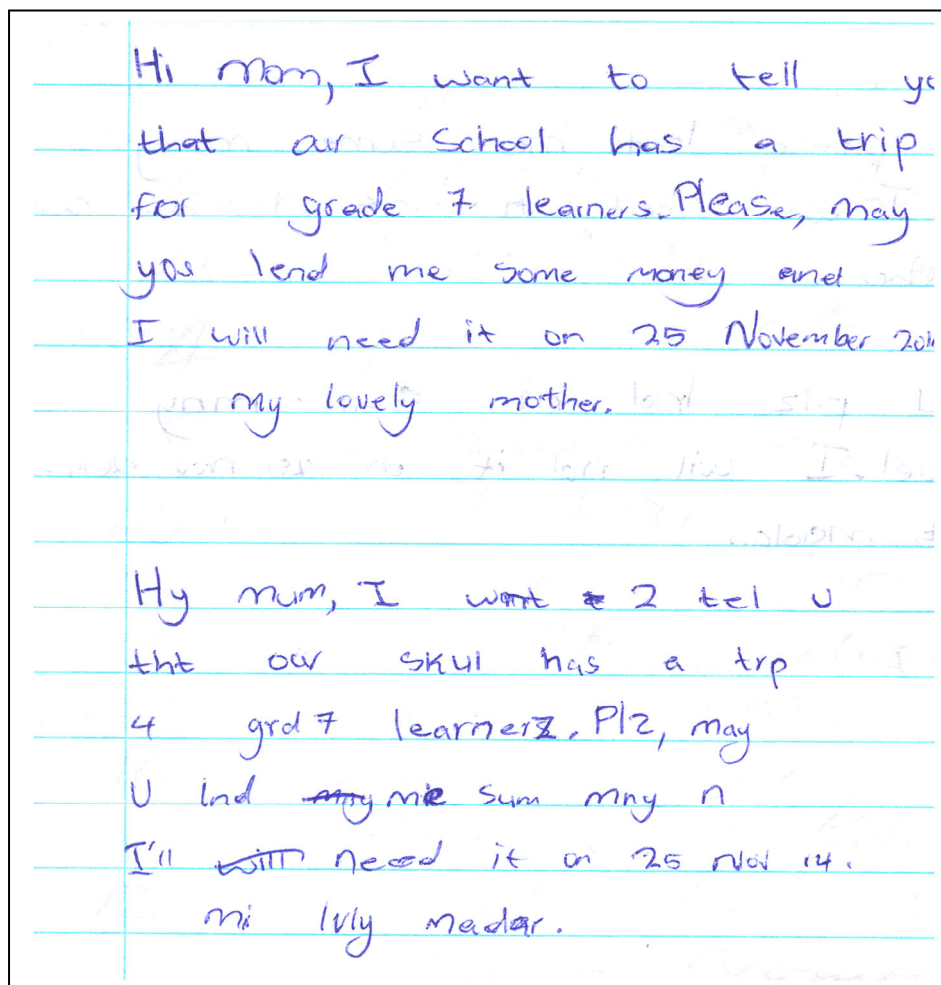 Hi mom, I want to tell yo
that our school has a trip
for grade 7 learners. Please, may
you lend me some money and
I will need it on 25 November 201
my lovely mother.
Hy mum, I want 2 tel u
tht our skul has a trp
4 grd 7 learnerz. Plz, may
U lnd me sum mny n
I'll need it on 25 Nov 14.
mi lvly madar.